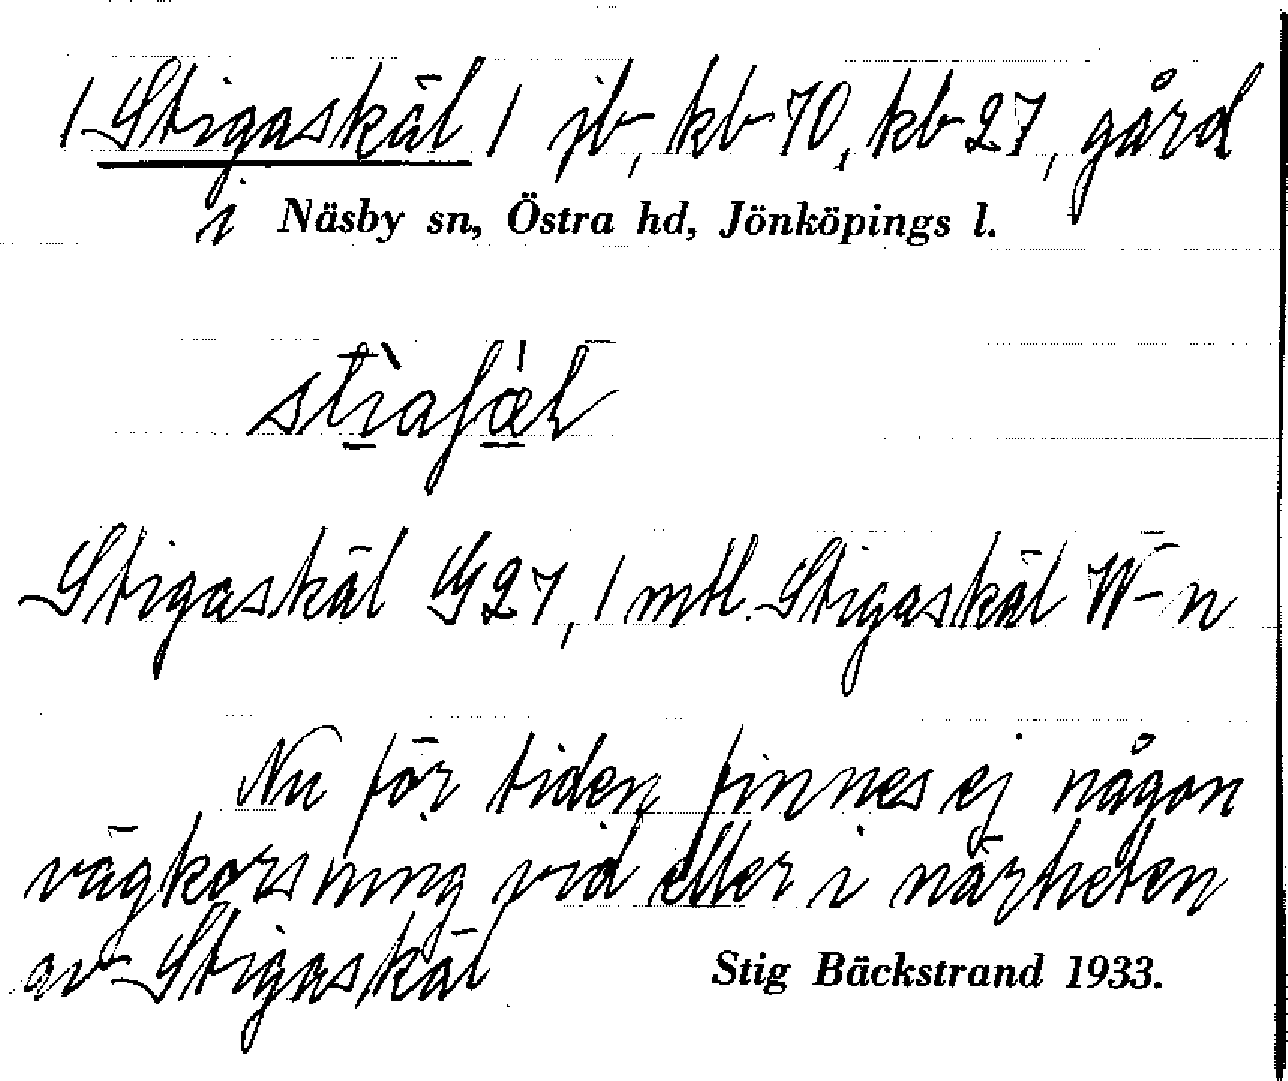 / Stigaskäl / jb, kb 70, kb 27, gård
i Näsby sn, Östra hd, Jönköpings l.
Stigaskäl G 27, 1 mtl. Stigaskäl W-n
Nu för tiden finnes ej någon
vägkorsning vid eller i närheten
av Stigaskäl
Stig Bäckstrand 1933.